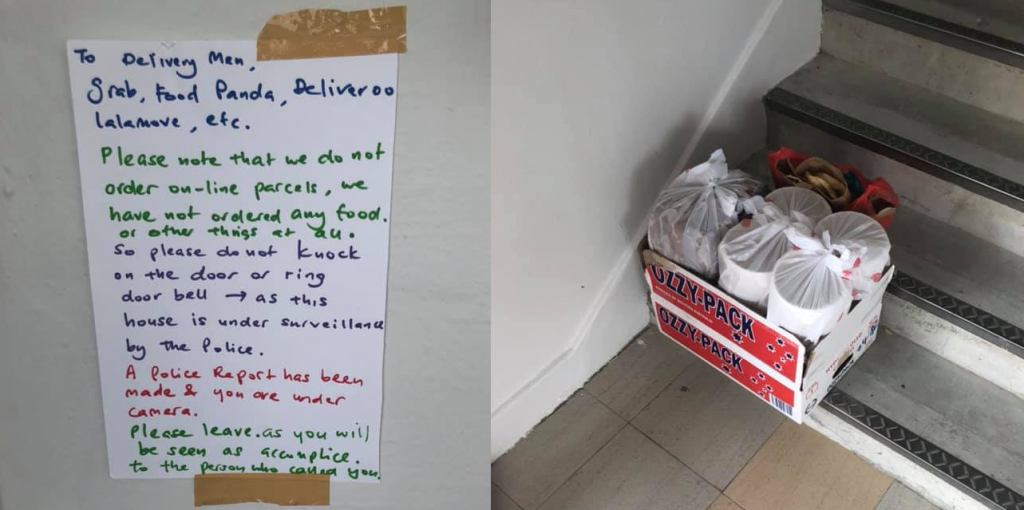 To Delivery Men,
Grab, Food Panda, Deliveroo
lalamove, etc.
Please note that we do not
order on-line parcels, we
have not ordered any food.
or other things at all.
So please do not knock
on the door or ring
door bell → as this
house is under surveillance
by the Police.
A Police Report has been
made & you are under
camera.
Please leave. as you will
be seen as accomplice.
to the person who called you.
OZZY-PACK
OZZY-PACK